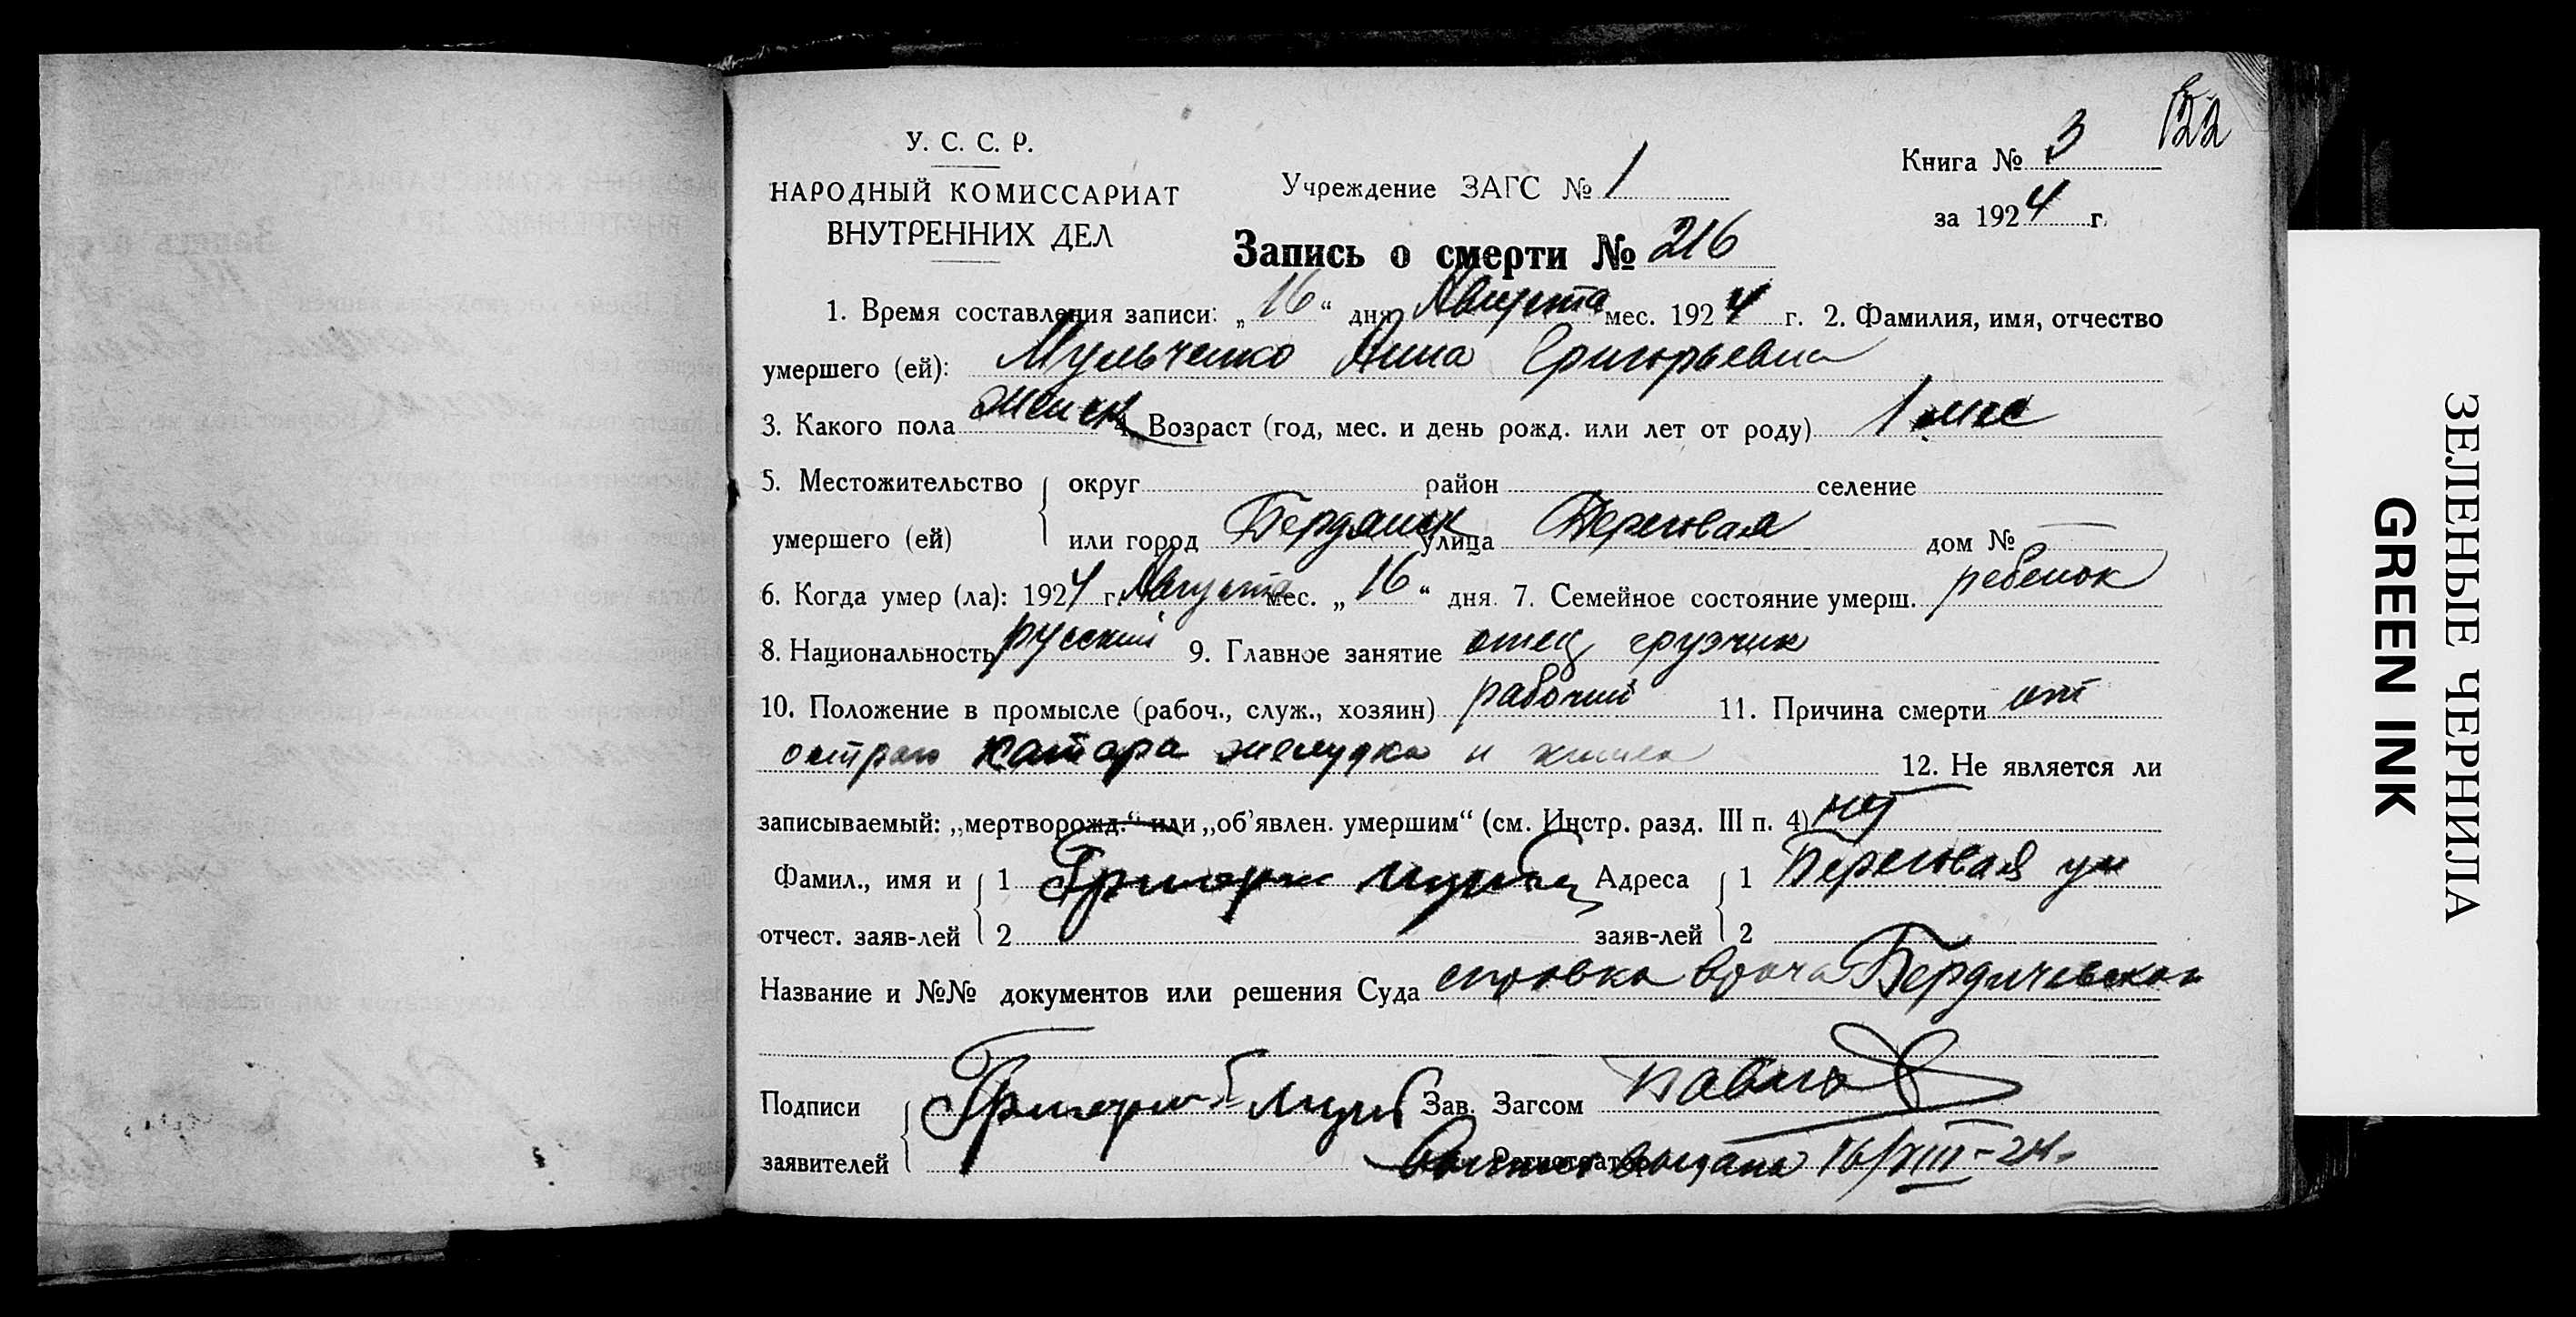 122
У. С. С. Р.
НАРОДНЫЙ КОМИССАРИАТ
ВНУТРЕННИХ ДЕЛ
Учреждение ЗАГС № 1
Книга № 3
за 1924 г.
Запись о смерти № 216
1. Время составления записи: „16“ дня Августа мес. 1924 г. 2. Фамилия, имя, отчество
умершего (ей): Мульченко Анна Григорьевна
3. Какого пола женск 4. Возраст (год, мес. и день рожд. или лет от роду) 1 мес
5. Местожительство округ район селение
умершего (ей) или город Бердянск улица Береговая дом № —
6. Когда умер (ла): 1924 г. Августа мес. „16“ дня 7. Семейное состояние умерш. ребенок
8. Национальность русский 9. Главное занятие отец грузчик
10. Положение в промысле (рабоч., служ., хозяин) рабочий 11. Причина смерти от
острого катара желудка и 12. Не является ли
записываемый: „мертворожд.“ или „об’явлен. умершим“ (см. Инстр. разд. III п. 4) нет
Фамил., имя и 1 Григорий Адреса 1 Береговая ул
отчест. заяв-лей 2 заяв-лей 2
Название и №№ документов или решения Суда справка врача Бердичевского
Подписи Григорий Зав. Загсом
заявителей Регистратор выдана 16/VIII-24.
ЗЕЛЕНЫЕ ЧЕРНИЛА
GREEN INK